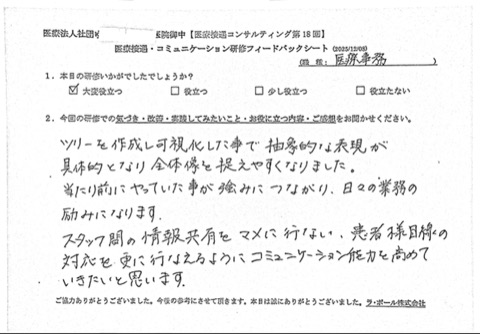 医療法人社団 医院御中【医療接遇コンサルティング第18回】
医療接遇・コミュニケーション研修フィードバックシート (2025/12/05)
(職 種: 医療事務 )
1. 本日の研修いかがでしたでしょうか?
☑ 大変役立つ □ 役立つ □ 少し役立つ □ 役立たない
2. 今回の研修での気づき・改善・実践してみたいこと・お役に立つ内容・ご感想をお聞かせください。
ツリーを作成し可視化した事で抽象的な表現が
具体的となり全体像を捉えやすくなりました。
当たり前にやっていた事が強みにつながり、日々の業務の
励みになります。
スタッフ間の情報共有をマメに行ない、患者様目線の
対応を更に行なえるようにコミュニケーション能力を高めて
いきたいと思います。
ご協力ありがとうございました。今後の参考にさせて頂きます。本日は誠にありがとうございました。ラ・ポール株式会社